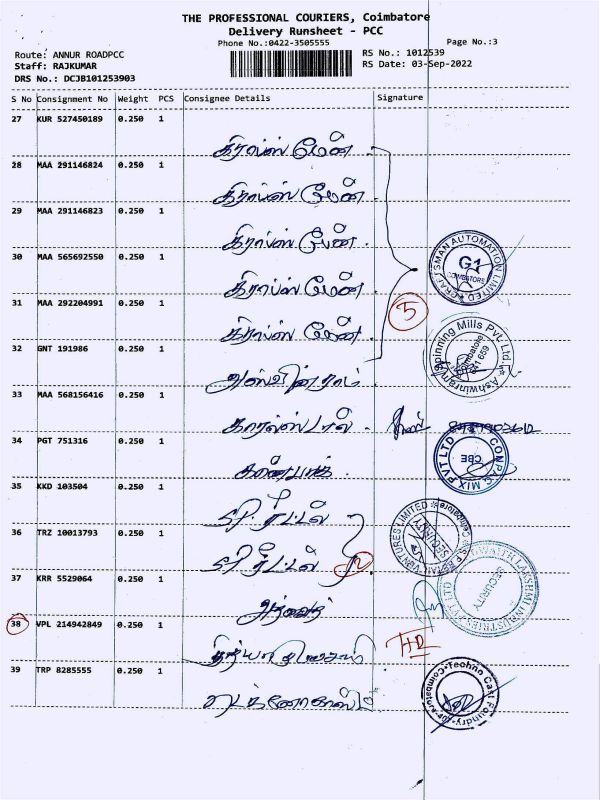 THE PROFESSIONAL COURIERS, Coimbatore
Delivery Runsheet - PCC
Phone No.:0422-3505555
Page No.:3
Route: ANNUR ROADPCC
RS No.: 1012539
Staff: RAJKUMAR
RS Date: 03-Sep-2022
DRS No.: DCJB101253903
S No Consignment No Weight PCS Consignee Details Signature
27 KUR 527450189 0.250 1
கிராப்ஸ் மேன்
28 MAA 291146824 0.250 1
கிராப்ஸ் மேன்
29 MAA 291146823 0.250 1
கிராப்ஸ் மேன்
30 MAA 565692550 0.250 1
கிராப்ஸ் மேன்
CRAFTSMAN AUTOMATION LIMITED
G1
COIMBATORE
31 MAA 292204991 0.250 1
5
கிராப்ஸ் மேன்
32 GNT 191986 0.250 1
Ashwinram Spinning Mills Pvt. Ltd.
Coimbatore
641 659
அஸ்வின்ராம்
33 MAA 568156416 0.250 1
34 PGT 751316 0.250 1
CONPAC MIX PVT LTD
CBE
35 KKD 103504 0.250 1
S.P. ரீட்டல்
36 TRZ 10013793 0.250 1
SECURITY
S.P. ரீட்டல்
2
37 KRR 5529064 0.250 1
ADWAITH LAKSHMI INDUSTRIES PVT LTD
SECURITY
அத்வைத்
38 VPL 214942849 0.250 1
39 TRP 8285555 0.250 1
Techno Cast Foundry
Coimbatore